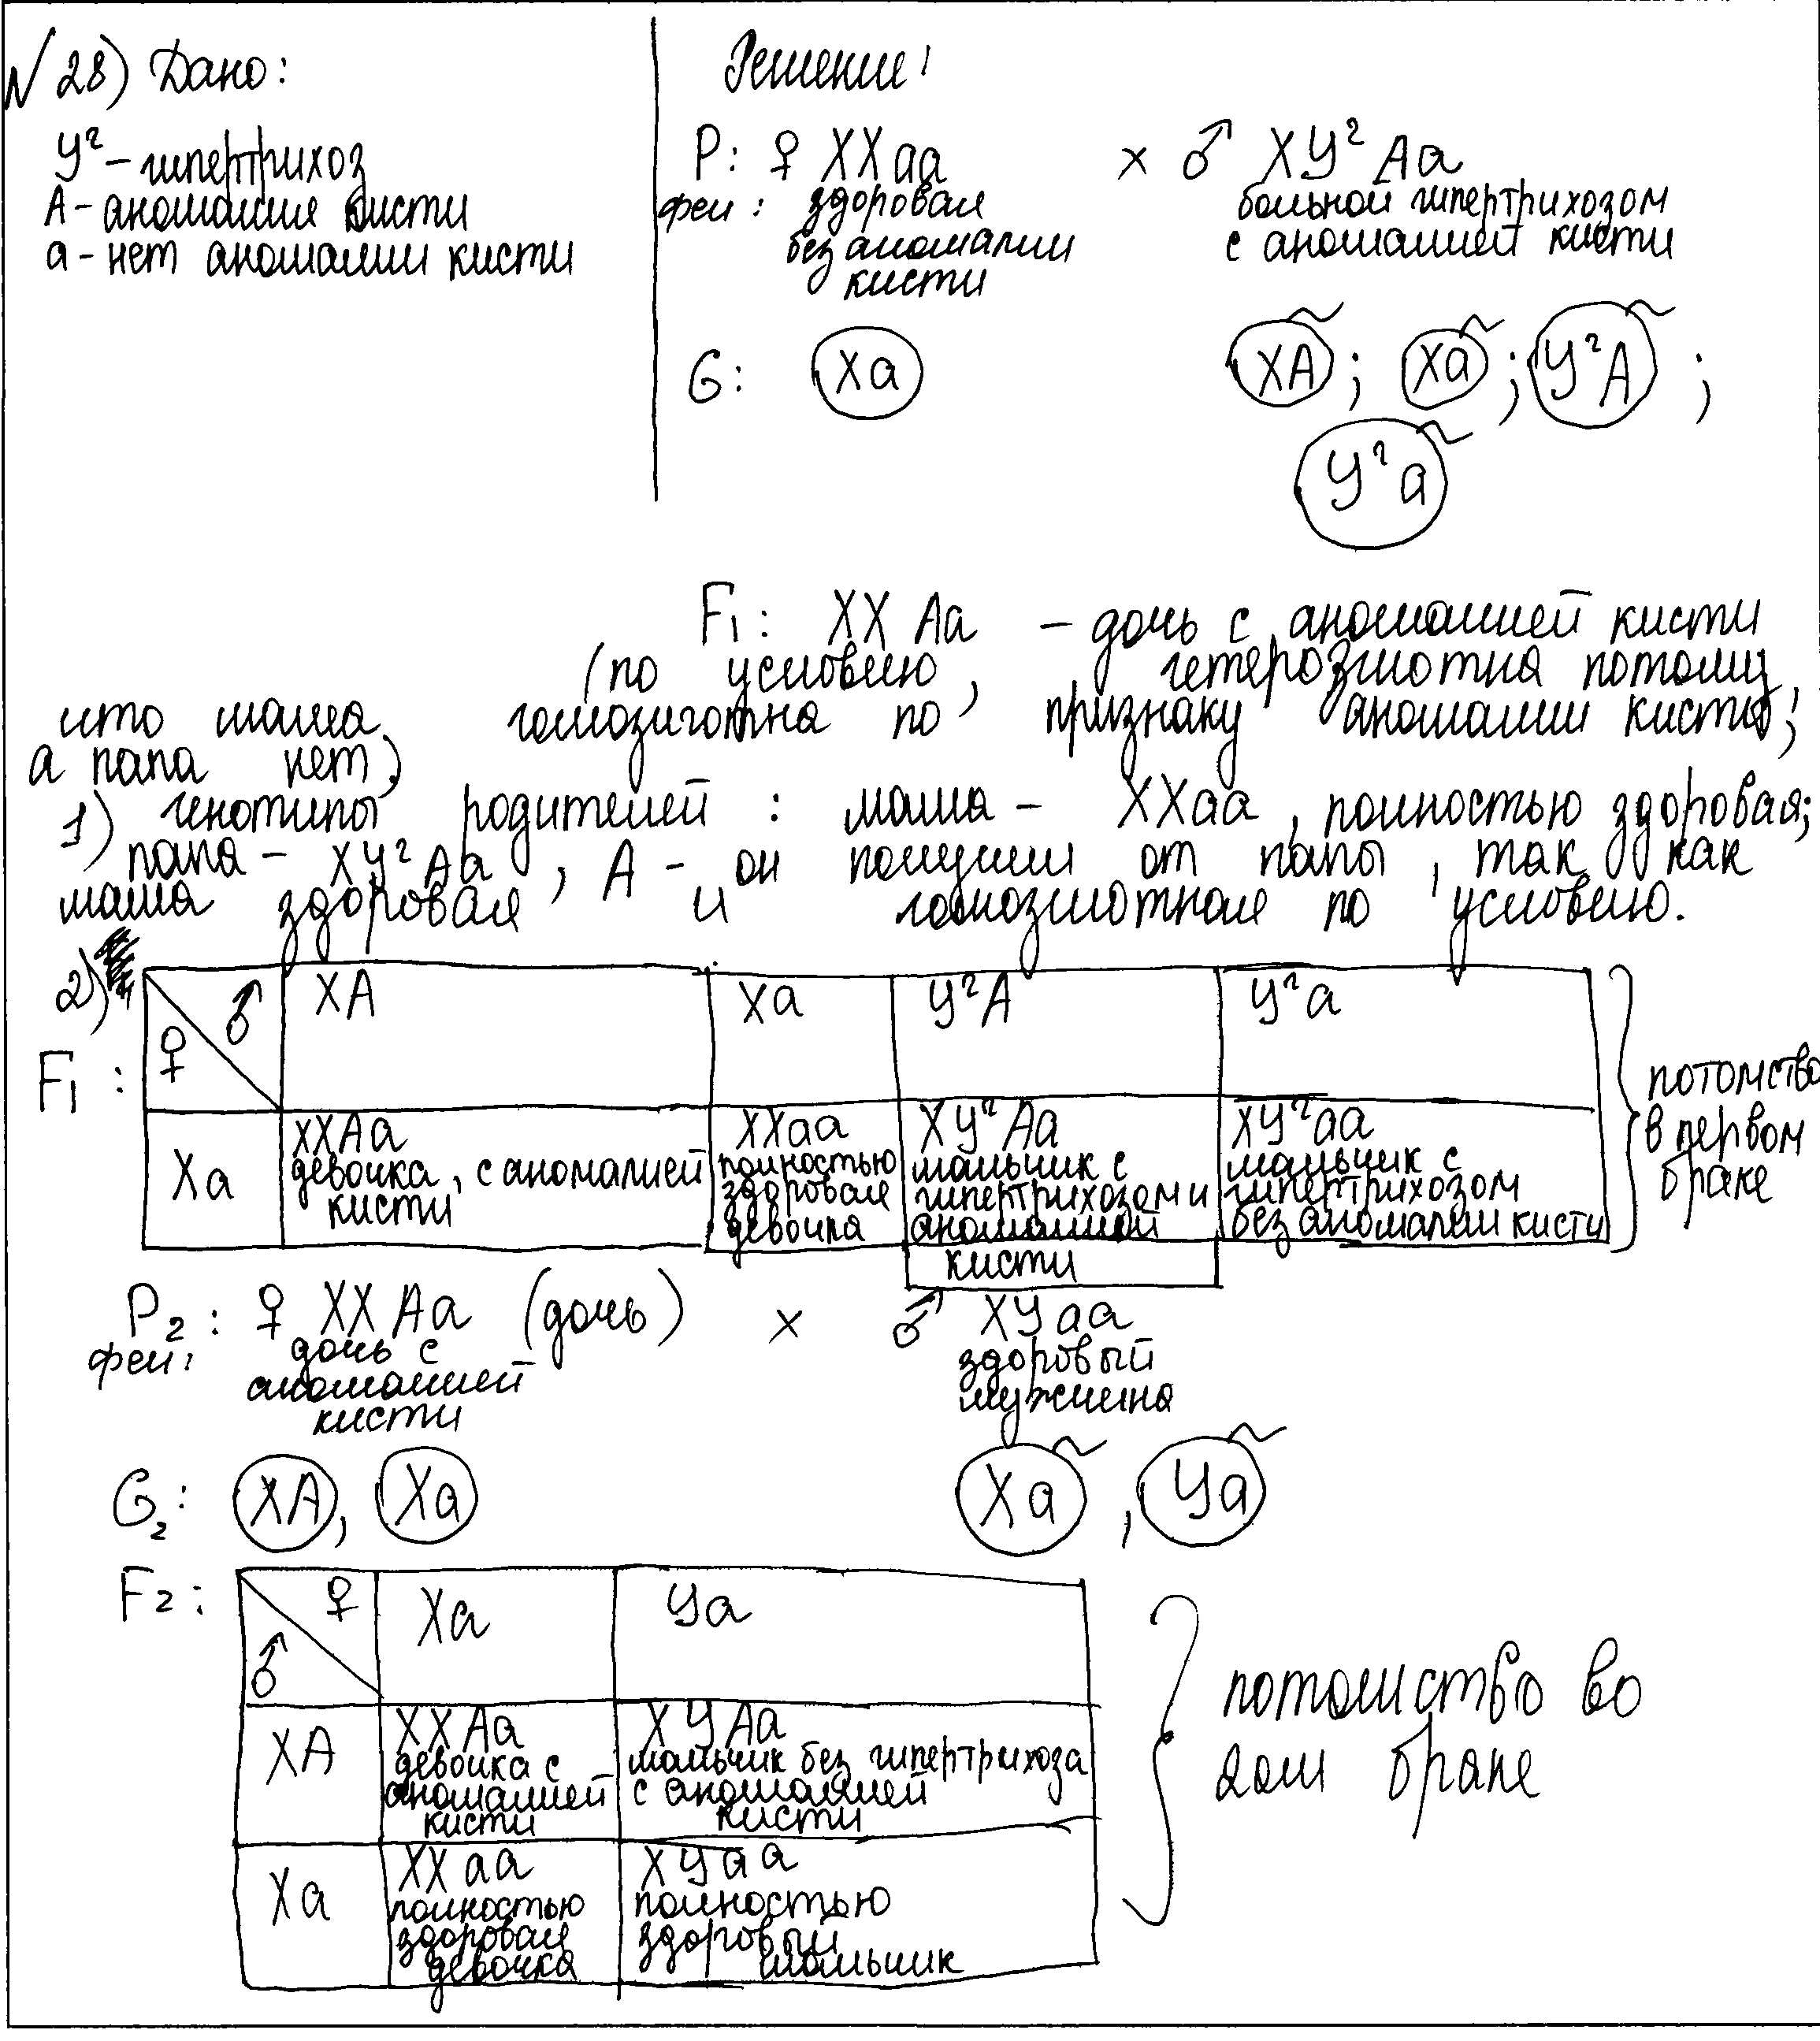 № 28) Дано:
Решение:
Уг - гипертрихоз
А - аномалия кисти
а - нет аномалии кисти
Р: ♀ ХХаа × ♂ ХУг Аа
фен: здоровая без аномалии кисти
больной гипертрихозом с аномалией кисти
G: Ха
ХА ; Ха ; УгА ;
Уга
F1: ХХ Аа - дочь с аномалией кисти
(по условию, гетерозиготна потому,
что мама гомозиготна по признаку аномалии кисти,
а папа нет)
1) генотипы родителей : мама - ХХаа, полностью здоровая;
папа - ХУг Аа, А - он получил от папы, так как
мама здоровая и гомозиготная по условию.
2)
F1:
♀ ♂ ХА Ха УгА Уга
Ха
ХХАа девочка, с аномалией кисти
ХХаа полностью здоровая девочка
ХУгАа мальчик с гипертрихозом и аномалией кисти
ХУгаа мальчик с гипертрихозом без аномалии кисти
потомство в первом браке
Р2: ♀ ХХ Аа (дочь) × ♂ ХУаа
фен: дочь с аномалией кисти
здоровый мужчина
G2: ХА, Ха
Ха, Уа
F2:
♂ ♀ Ха Уа
ХА
ХХАа девочка с аномалией кисти
ХУАа мальчик без гипертрихоза с аномалией кисти
Ха
ХХаа полностью здоровая девочка
ХУаа полностью здоровый мальчик
потомство во
2ом браке